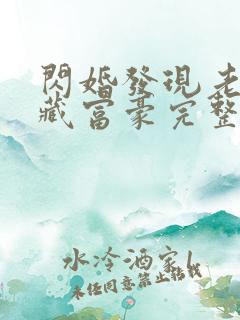 閃婚發現老
藏富豪完整
水冷酒家l
未經同意禁止轉載